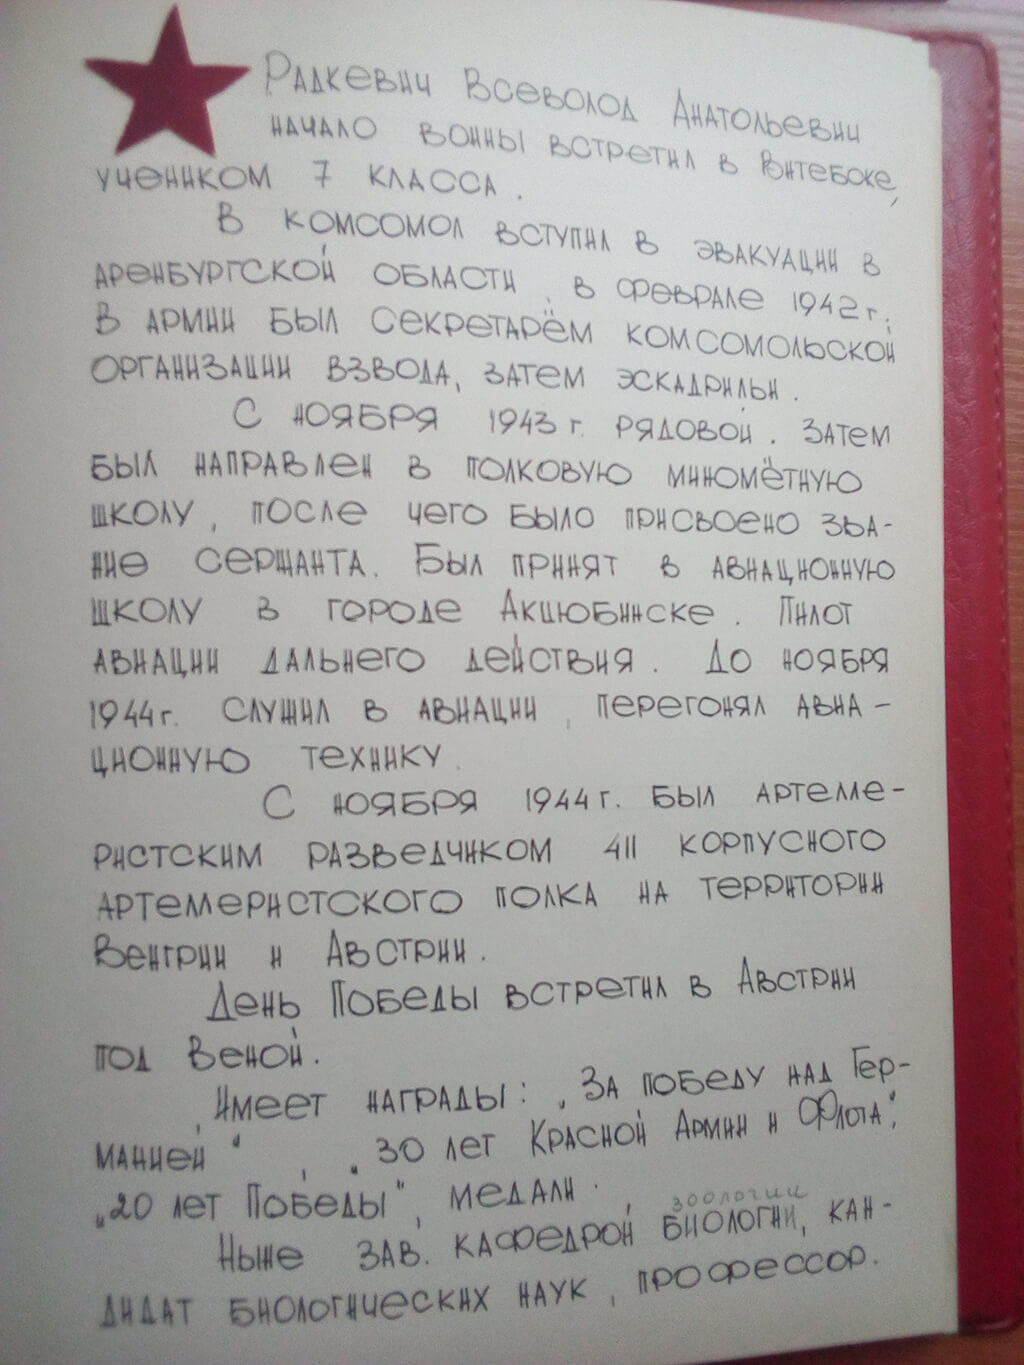 Радкевич Всеволод Анатольевич
начало войны встретил в Витебске,
учеником 7 класса.
В комсомол вступил в эвакуации в
Аренбургской области, в феврале 1942 г.
В армии был секретарём комсомольской
организации взвода, затем эскадрильи.
С ноября 1943 г. рядовой. Затем
был направлен в полковую миномётную
школу, после чего было присвоено зва-
ние сержанта. Был принят в авиационную
школу в городе Акцюбинске. Пилот
авиации дальнего действия. До ноября
1944 г. служил в авиации, перегонял авиа-
ционную технику.
С ноября 1944 г. был артелле-
ристским разведчиком 411 корпусного
артеллеристского полка на территории
Венгрии и Австрии.
День Победы встретил в Австрии
под Веной.
Имеет награды: „За победу над Гер-
манией", „30 лет Красной Армии и Флота",
„20 лет Победы", медали.
зоологии
Ныне зав. кафедрой биологии, кан-
дидат биологических наук, профессор.